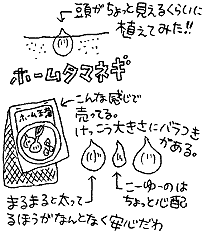 頭がちょっと見えるくらいに
植えてみた!!
ホームタマネギ
こんな感じで
売ってる。
けっこう大きさにバラつき
がある。
ホーム玉葱
まるまると太って
るほうがなんとなく安心だわ
こーゆーのは
ちょっと心配